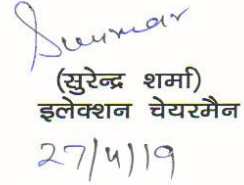 (सुरेन्द्र शर्मा)
इलेक्शन चेयरमैन
27/4/19